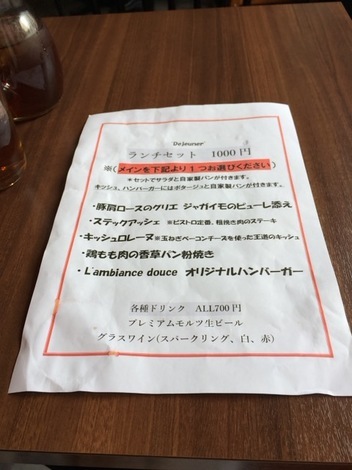 "Dejeuner"
ランチセット 1000円
※(メインを下記より1つお選びください)
*セットでサラダと自家製パンが付きます。
キッシュ、ハンバーガーにはポタージュと自家製パンが付きます。
・豚肩ロースのグリエ ジャガイモのピューレ添え
・ステックアッシェ ※ビストロ定番、粗挽き肉のステーキ
・キッシュロレーヌ※玉ねぎベーコンチーズを使った王道のキッシュ
・鶏もも肉の香草パン粉焼き
・L'ambiance douce オリジナルハンバーガー
各種ドリンク ALL700円
プレミアムモルツ生ビール
グラスワイン(スパークリング、白、赤)